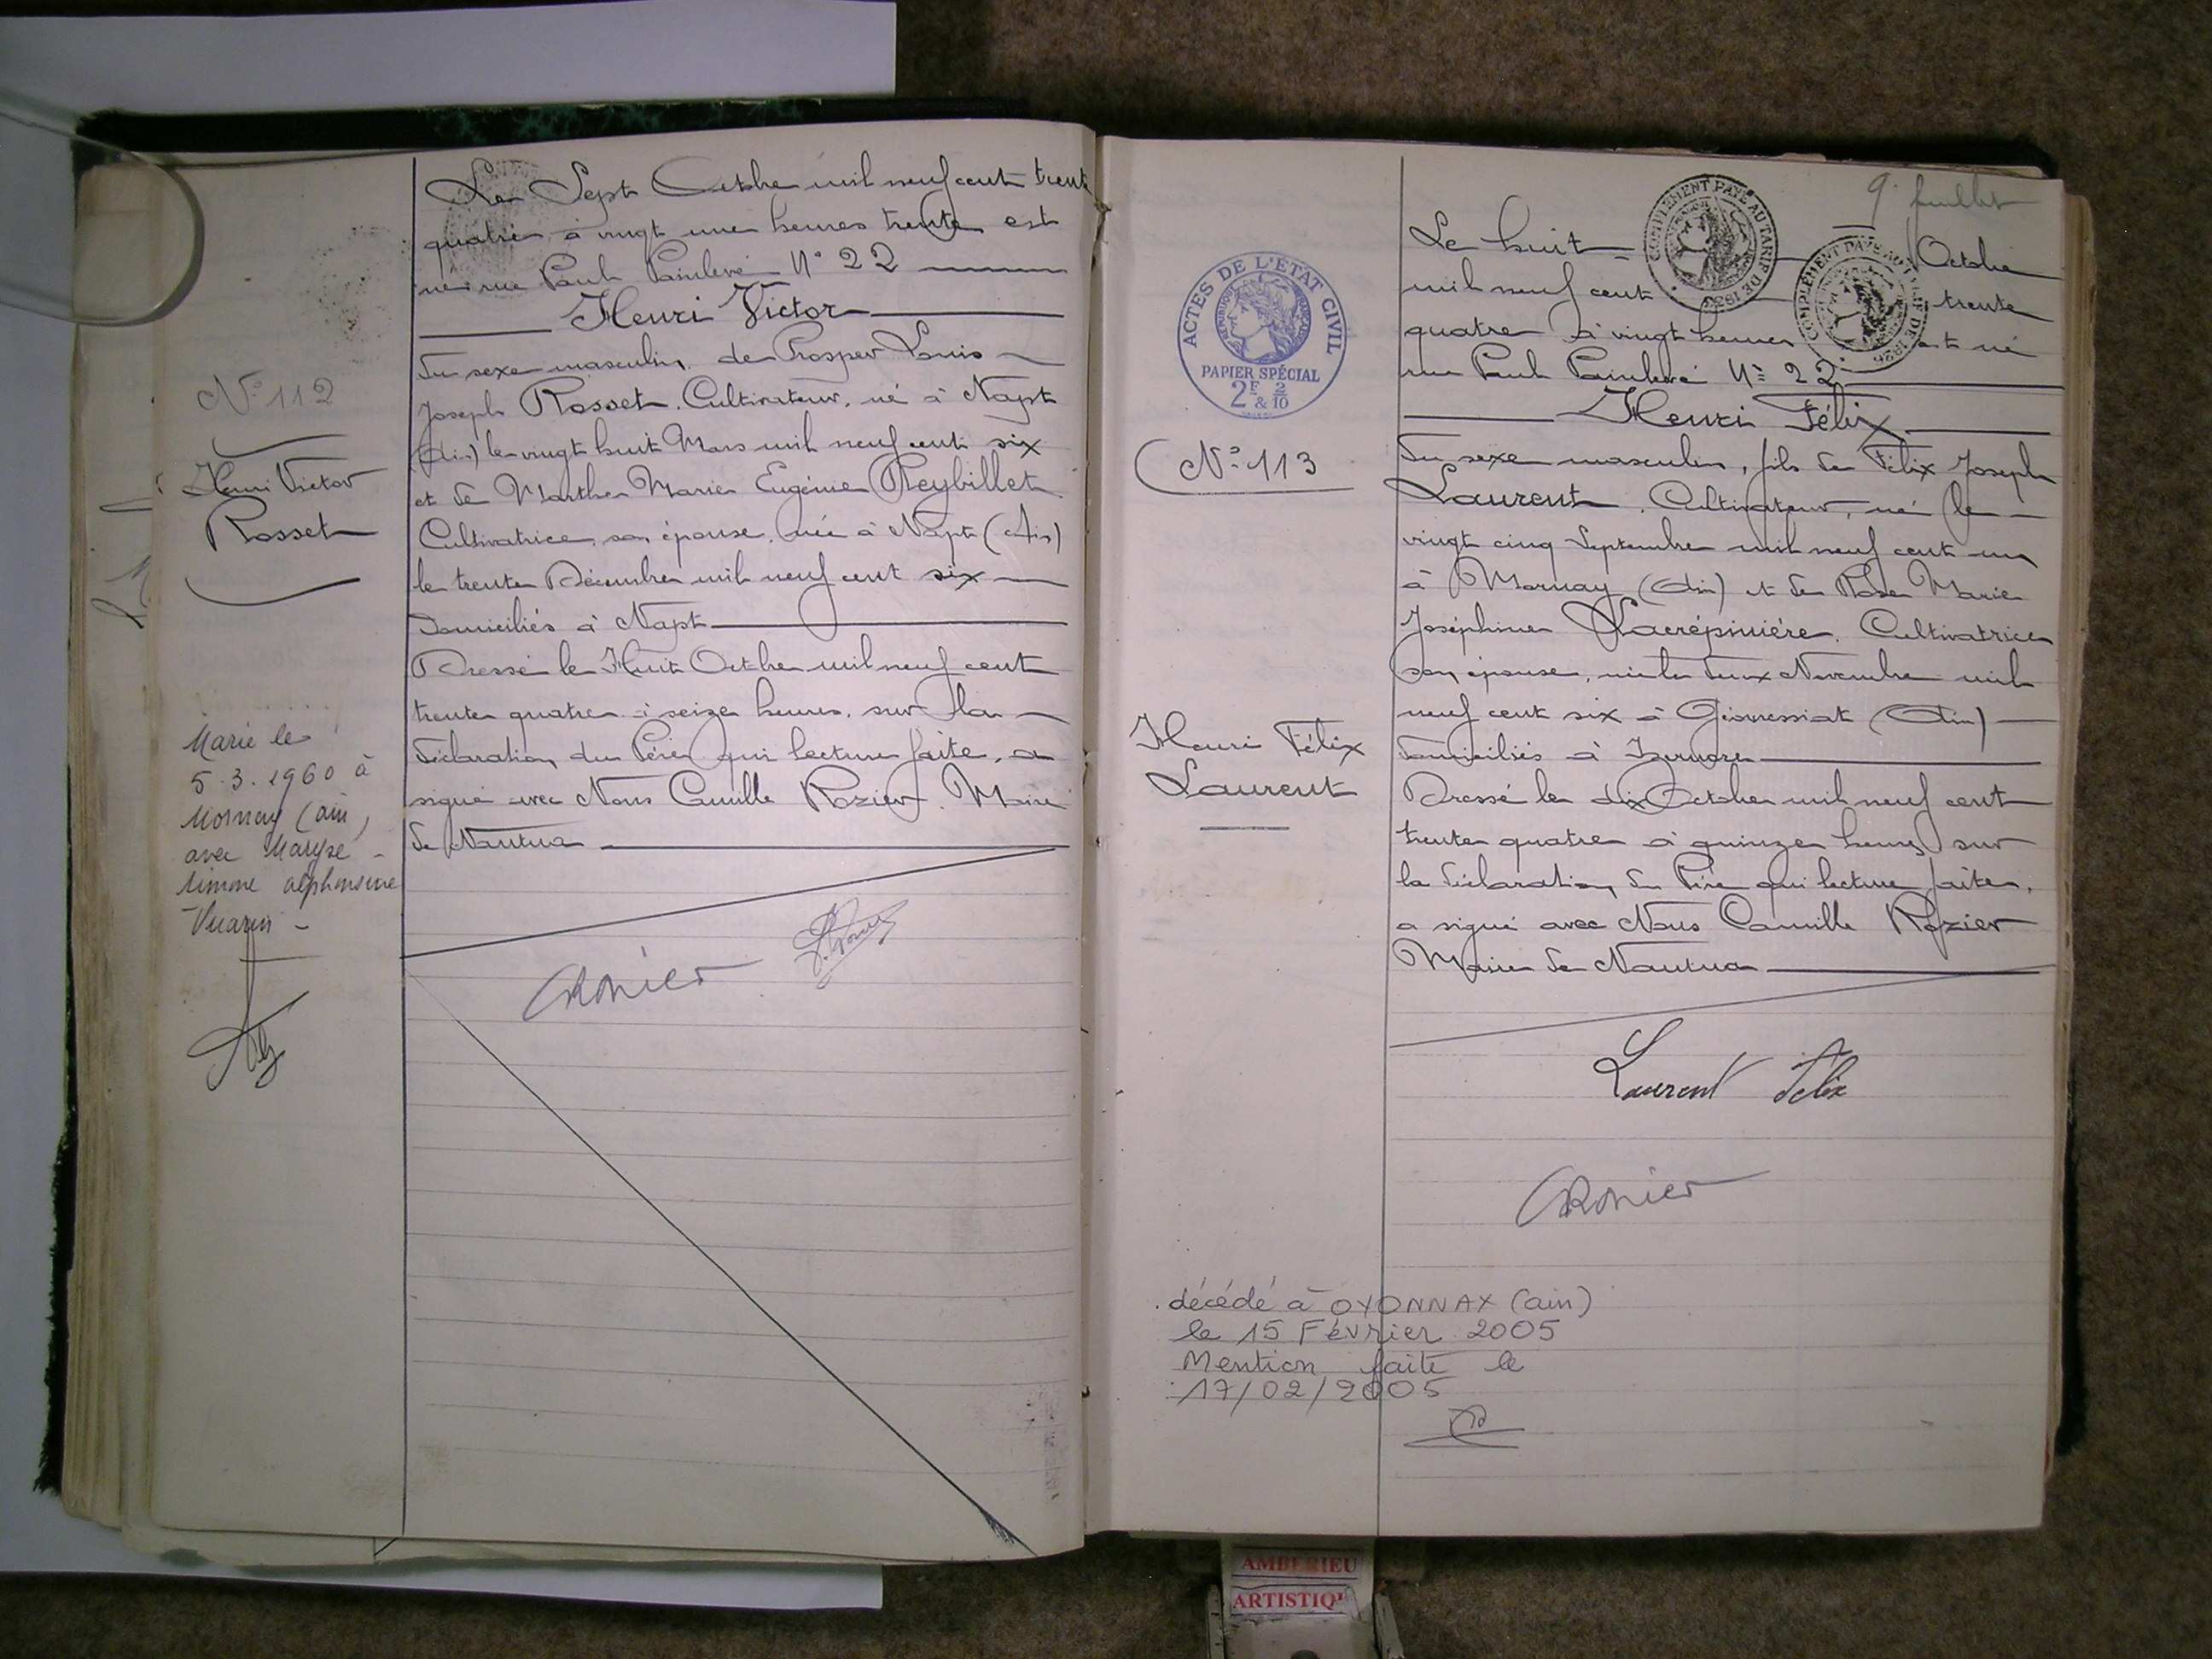 N° 112
Henri Victor
Rosset
Marié le
5.3.1960 à
Mornay (ain)
avec Maryse
simone alphonsine
Vuarin -
Le Sept Octobre mil neuf cent trente
quatre à vingt une heures trente est
né rue Paul Painlevé N° 22
Henri Victor
du sexe masculin, de Prosper Louis
Joseph Rosset, Cultivateur, né à Napt
(Ain) le vingt huit Mars mil neuf cent six
et de Marthe Marie Eugénie Reybillet
Cultivatrice, son épouse, née à Napt (Ain)
le trente Décembre mil neuf cent six
domiciliés à Napt
Dressé le Huit Octobre mil neuf cent
trente quatre à seize heures, sur la
déclaration du Père qui lecture faite, a
signé avec Nous Camille Rozier, Maire
de Nantua
CRozier
9e feuillet
ACTES DE L'ÉTAT CIVIL
RÉPUBLIQUE FRANÇAISE
PAPIER SPÉCIAL
2F & 2/10
COMPLÉMENT PAYÉ AU TARIF DE 1925
COMPLÉMENT PAYÉ AU TARIF DE 1925
N° 113
Henri Félix
Laurent
Le huit Octobre
mil neuf cent trente
quatre à vingt heures est né
rue Paul Painlevé N° 22
Henri Félix
du sexe masculin, fils de Félix Joseph
Laurent, Cultivateur, né le
vingt cinq Septembre mil neuf cent un
à Mornay (Ain) et de Rose Marie
Joséphine Lacrépinière, Cultivatrice
son épouse, née le deux Novembre mil
neuf cent six à Géovressiat (Ain)
domiciliés à Izernore
Dressé le dix Octobre mil neuf cent
trente quatre à quinze heures sur
la déclaration du Père qui lecture faite,
a signé avec Nous Camille Rozier
Maire de Nantua
Laurent Félix
CRozier
décédé à OYONNAX (ain)
le 15 Février 2005
Mention faite le
17/02/2005
AMBERIEU
ARTISTIQU